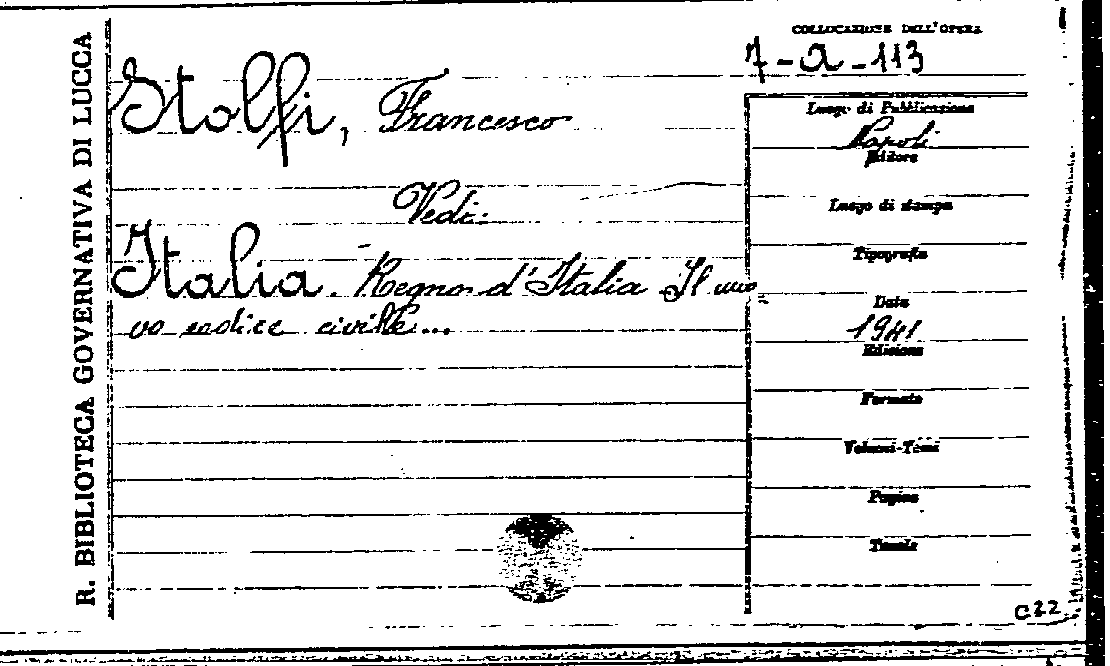 R. BIBLIOTECA GOVERNATIVA DI LUCCA
COLLOCAZIONE DELL'OPERA
7-a-113
Stolfi, Francesco
Vedi:
Italia. Regno d'Italia Il nuo=
vo codice civile...
Luogo di Pubblicazione
Napoli
Editore
Luogo di stampa
Tipografia
Data
1941
Edizione
Formato
Volumi-Tomi
Pagine
Tavole
C22